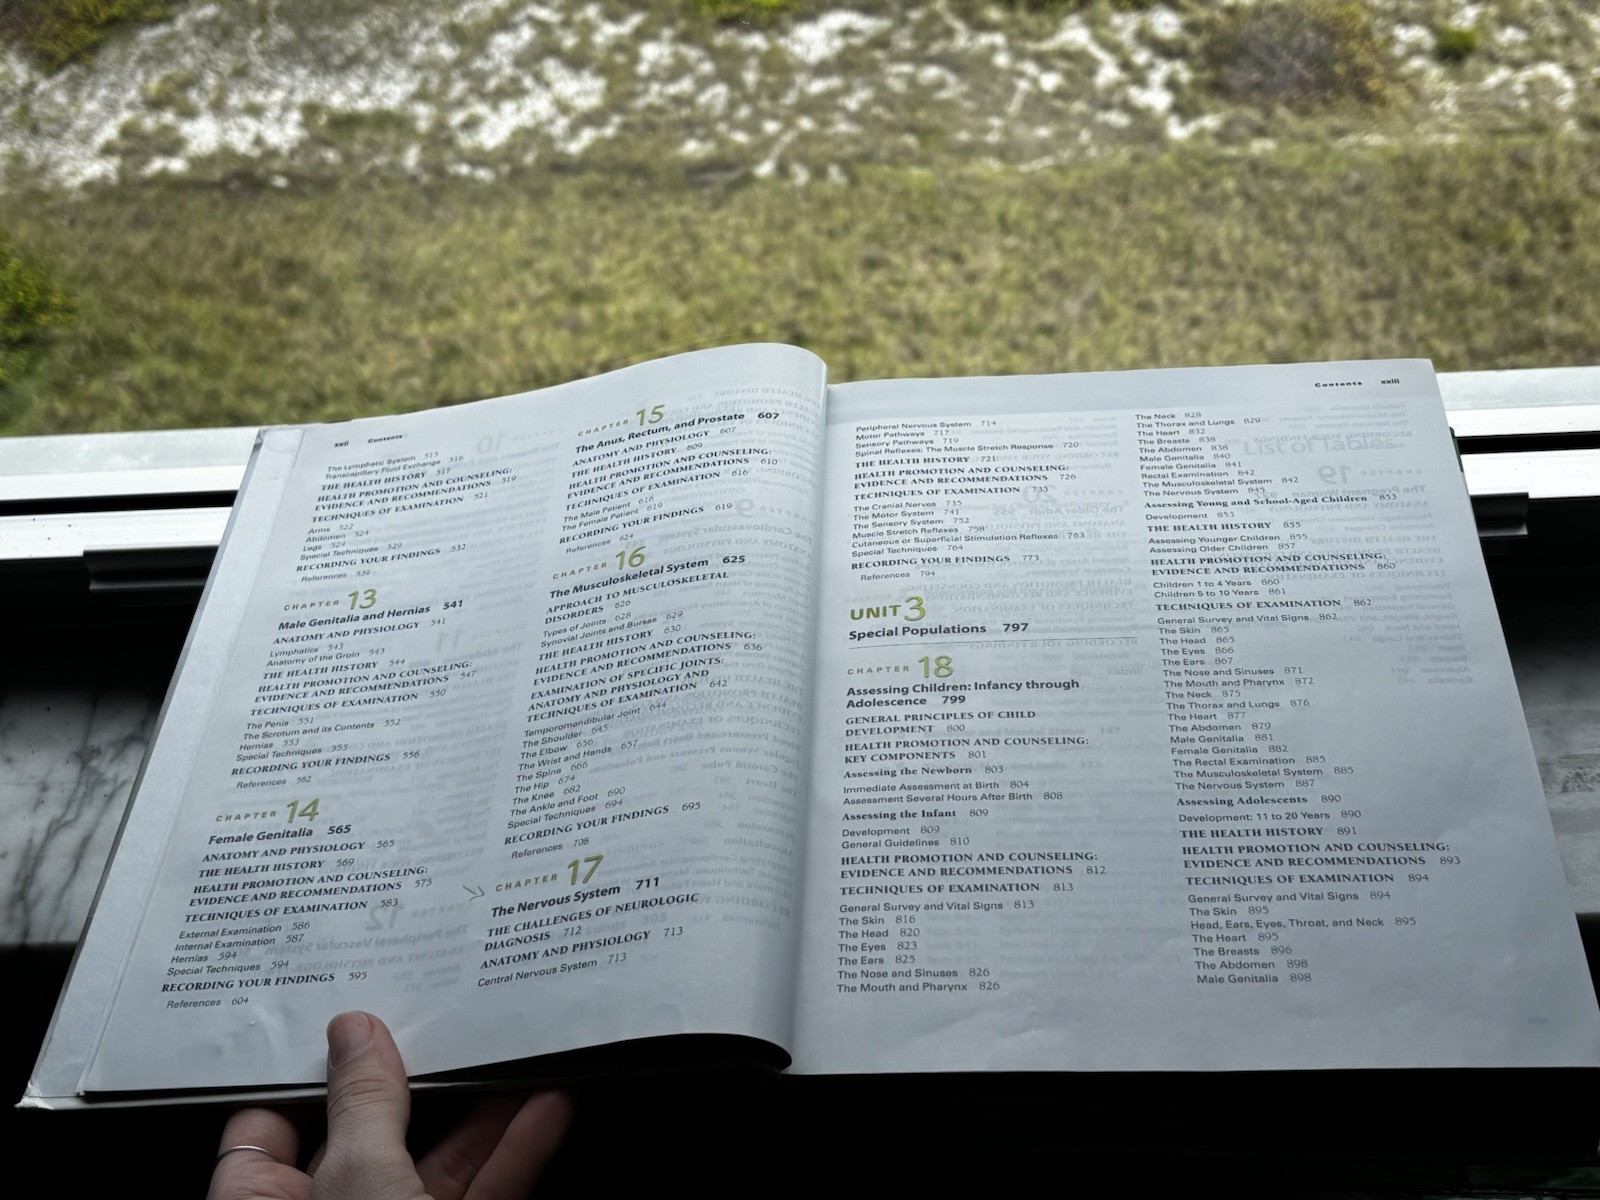 xxii Contents
The Lymphatic System 513
Transcapillary Fluid Exchange 516
THE HEALTH HISTORY 517
HEALTH PROMOTION AND COUNSELING:
EVIDENCE AND RECOMMENDATIONS 519
TECHNIQUES OF EXAMINATION 521
Arms 522
Abdomen 524
Legs 524
Special Techniques 529
RECORDING YOUR FINDINGS 532
References 539
CHAPTER 13
Male Genitalia and Hernias 541
ANATOMY AND PHYSIOLOGY 541
Lymphatics 543
Anatomy of the Groin 543
THE HEALTH HISTORY 544
HEALTH PROMOTION AND COUNSELING:
EVIDENCE AND RECOMMENDATIONS 547
TECHNIQUES OF EXAMINATION 550
The Penis 551
The Scrotum and its Contents 552
Hernias 553
Special Techniques 555
RECORDING YOUR FINDINGS 556
References 562
CHAPTER 14
Female Genitalia 565
ANATOMY AND PHYSIOLOGY 565
THE HEALTH HISTORY 569
HEALTH PROMOTION AND COUNSELING:
EVIDENCE AND RECOMMENDATIONS 575
TECHNIQUES OF EXAMINATION 583
External Examination 586
Internal Examination 587
Hernias 594
Special Techniques 594
RECORDING YOUR FINDINGS 595
References 604
CHAPTER 15
The Anus, Rectum, and Prostate 607
ANATOMY AND PHYSIOLOGY 607
THE HEALTH HISTORY 609
HEALTH PROMOTION AND COUNSELING:
EVIDENCE AND RECOMMENDATIONS 610
TECHNIQUES OF EXAMINATION 616
The Male Patient 616
The Female Patient 619
RECORDING YOUR FINDINGS 619
References 624
CHAPTER 16
The Musculoskeletal System 625
APPROACH TO MUSCULOSKELETAL
DISORDERS 626
Types of Joints 628
Synovial Joints and Bursae 629
THE HEALTH HISTORY 630
HEALTH PROMOTION AND COUNSELING:
EVIDENCE AND RECOMMENDATIONS 636
EXAMINATION OF SPECIFIC JOINTS:
ANATOMY AND PHYSIOLOGY AND
TECHNIQUES OF EXAMINATION 642
Temporomandibular Joint 644
The Shoulder 645
The Elbow 656
The Wrist and Hands 657
The Spine 666
The Hip 674
The Knee 682
The Ankle and Foot 690
Special Techniques 694
RECORDING YOUR FINDINGS 695
References 708
CHAPTER 17
The Nervous System 711
THE CHALLENGES OF NEUROLOGIC
DIAGNOSIS 712
ANATOMY AND PHYSIOLOGY 713
Central Nervous System 713
Contents xxiii
Peripheral Nervous System 714
Motor Pathways 717
Sensory Pathways 719
Spinal Reflexes: The Muscle Stretch Response 720
THE HEALTH HISTORY 721
HEALTH PROMOTION AND COUNSELING:
EVIDENCE AND RECOMMENDATIONS 726
TECHNIQUES OF EXAMINATION 733
The Cranial Nerves 735
The Motor System 741
The Sensory System 752
Muscle Stretch Reflexes 758
Cutaneous or Superficial Stimulation Reflexes 763
Special Techniques 764
RECORDING YOUR FINDINGS 773
References 794
UNIT 3
Special Populations 797
CHAPTER 18
Assessing Children: Infancy through
Adolescence 799
GENERAL PRINCIPLES OF CHILD
DEVELOPMENT 800
HEALTH PROMOTION AND COUNSELING:
KEY COMPONENTS 801
Assessing the Newborn 803
Immediate Assessment at Birth 804
Assessment Several Hours After Birth 808
Assessing the Infant 809
Development 809
General Guidelines 810
HEALTH PROMOTION AND COUNSELING:
EVIDENCE AND RECOMMENDATIONS 812
TECHNIQUES OF EXAMINATION 813
General Survey and Vital Signs 813
The Skin 816
The Head 820
The Eyes 823
The Ears 825
The Nose and Sinuses 826
The Mouth and Pharynx 826
The Neck 828
The Thorax and Lungs 829
The Heart 832
The Breasts 838
The Abdomen 838
Male Genitalia 840
Female Genitalia 841
Rectal Examination 842
The Musculoskeletal System 842
The Nervous System 843
Assessing Young and School-Aged Children 853
Development 853
THE HEALTH HISTORY 855
Assessing Younger Children 855
Assessing Older Children 857
HEALTH PROMOTION AND COUNSELING:
EVIDENCE AND RECOMMENDATIONS 860
Children 1 to 4 Years 860
Children 5 to 10 Years 861
TECHNIQUES OF EXAMINATION 862
General Survey and Vital Signs 862
The Skin 865
The Head 865
The Eyes 866
The Ears 867
The Nose and Sinuses 871
The Mouth and Pharynx 872
The Neck 875
The Thorax and Lungs 876
The Heart 877
The Abdomen 879
Male Genitalia 881
Female Genitalia 882
The Rectal Examination 885
The Musculoskeletal System 885
The Nervous System 887
Assessing Adolescents 890
Development: 11 to 20 Years 890
THE HEALTH HISTORY 891
HEALTH PROMOTION AND COUNSELING:
EVIDENCE AND RECOMMENDATIONS 893
TECHNIQUES OF EXAMINATION 894
General Survey and Vital Signs 894
The Skin 895
Head, Ears, Eyes, Throat, and Neck 895
The Heart 895
The Breasts 896
The Abdomen 898
Male Genitalia 898